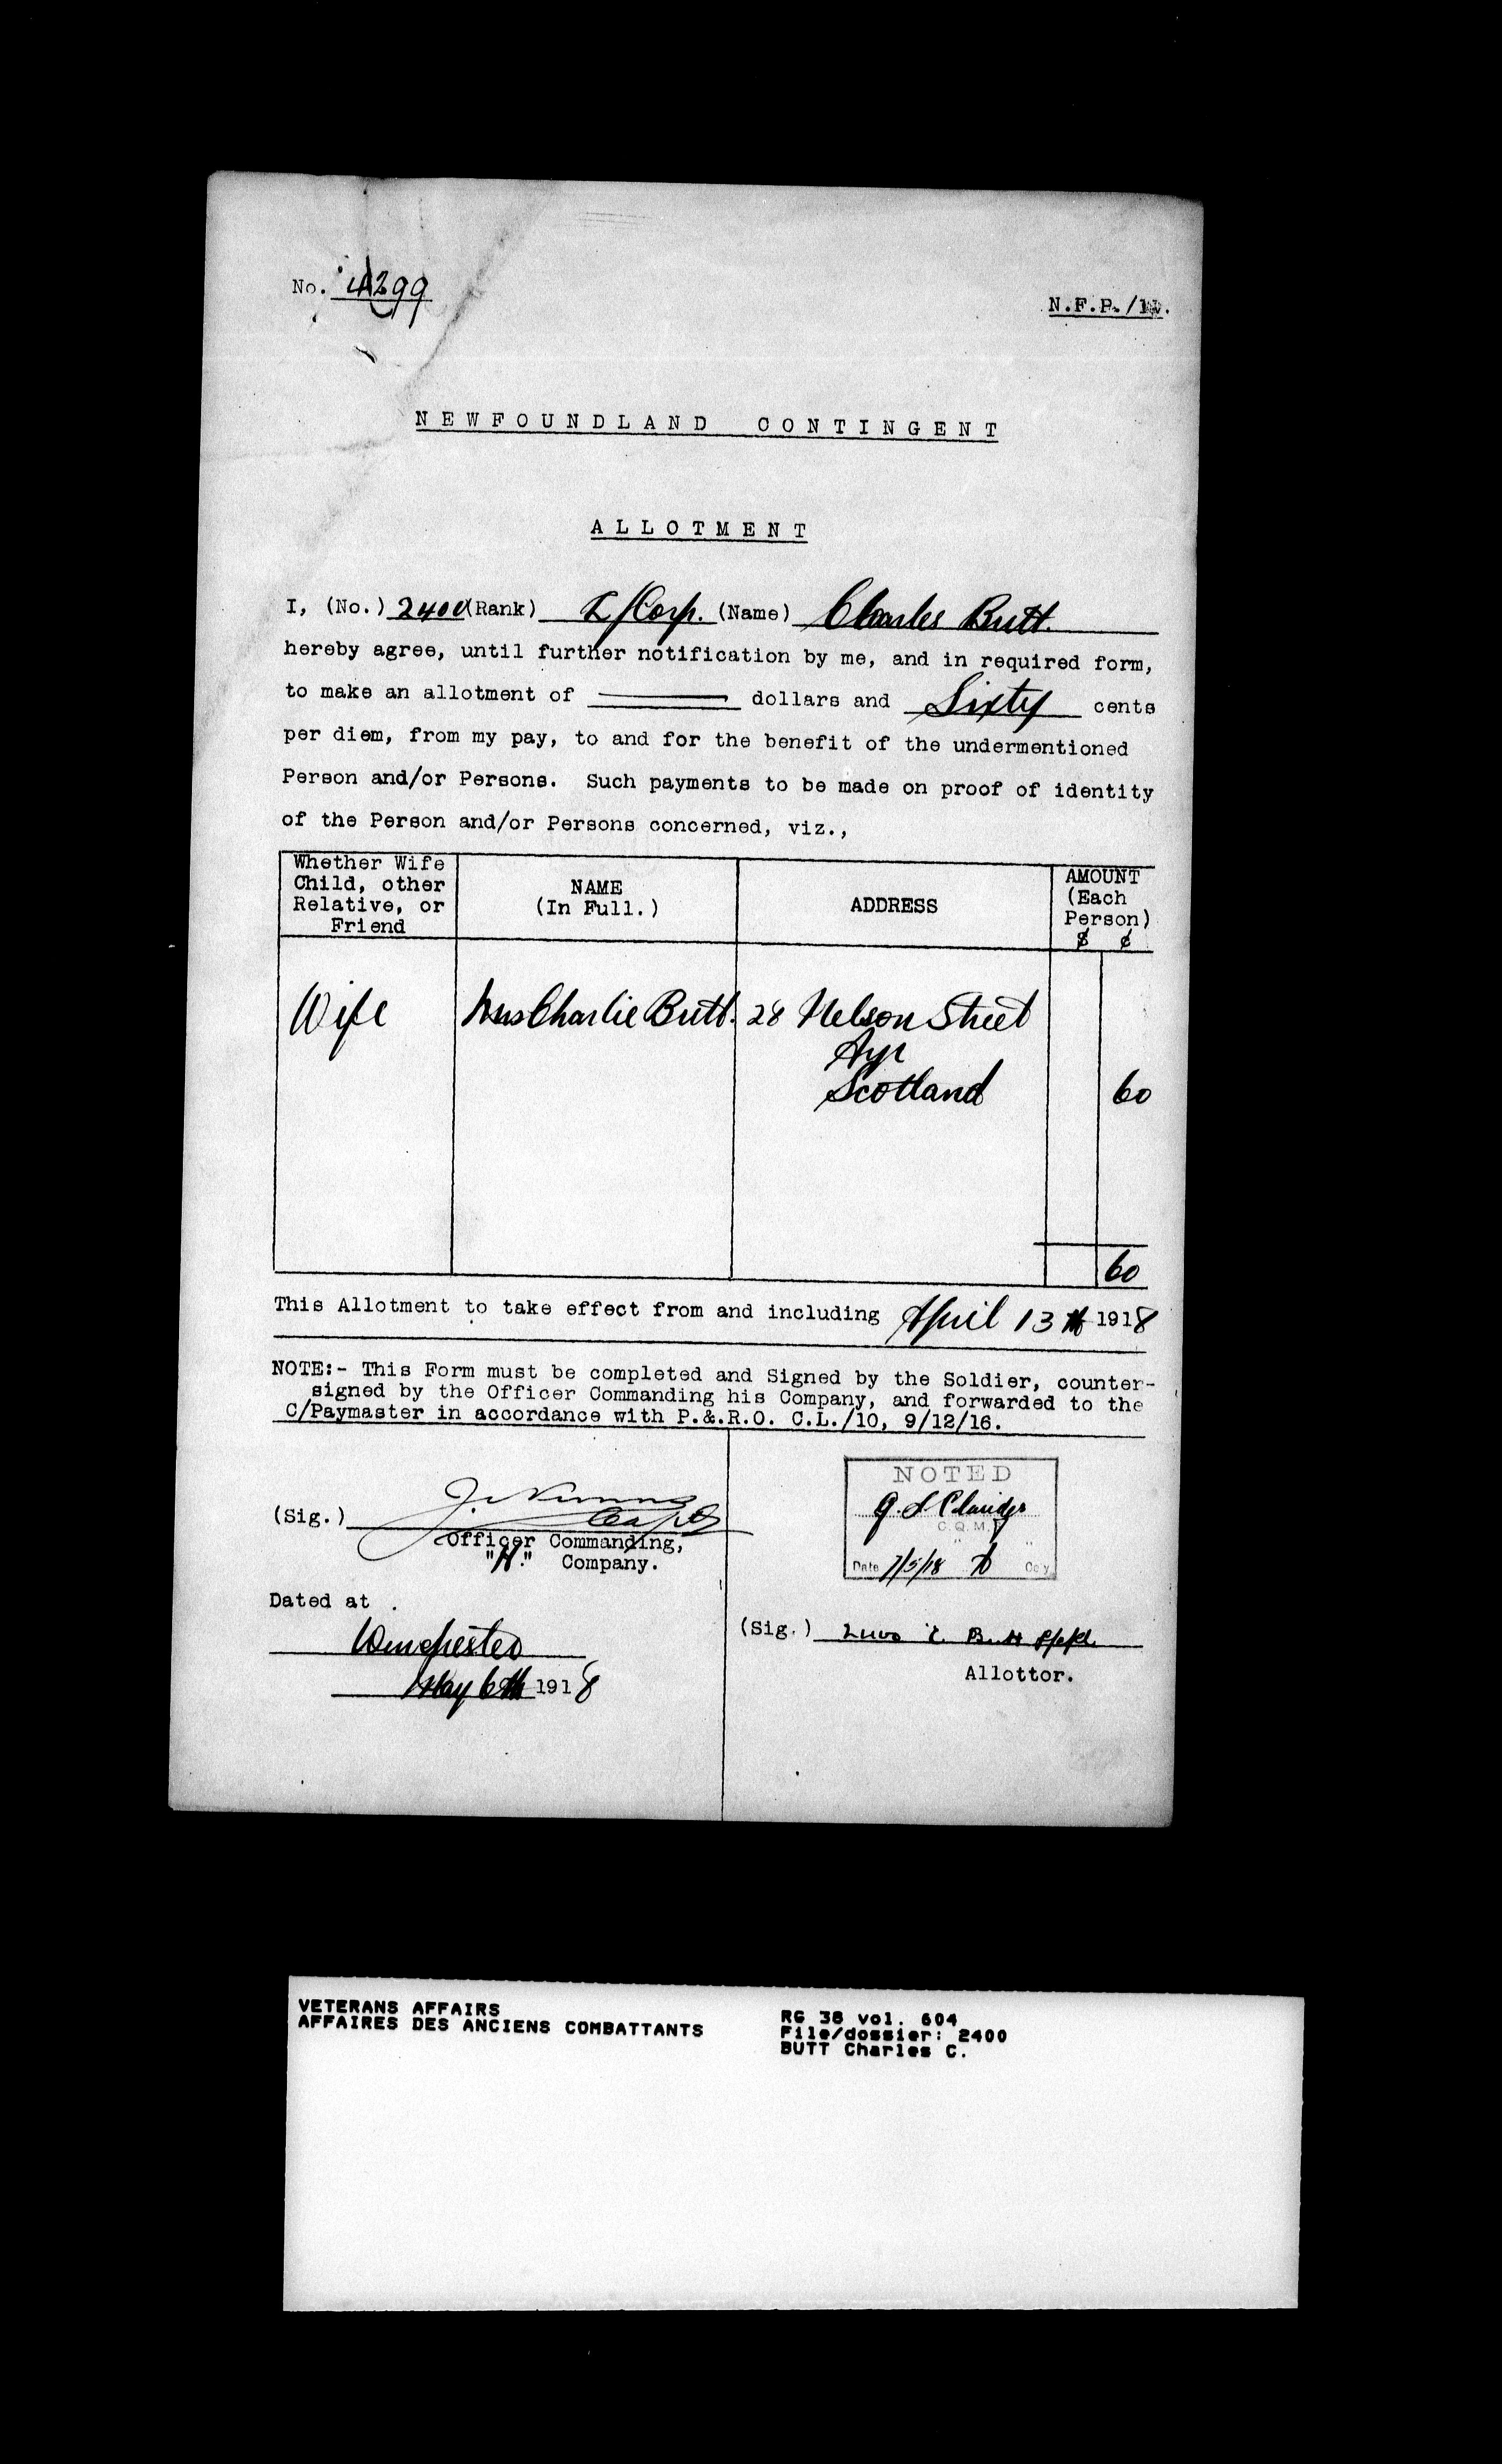 No. 4299
N.F.P./
NEWFOUNDLAND CONTINGENT
ALLOTMENT
I, (No.) 2400 (Rank) L/Corp. (Name) Charles Butt.
hereby agree, until further notification by me, and in required form,
to make an allotment of ——— dollars and Sixty cents
per diem, from my pay, to and for the benefit of the undermentioned
Person and/or Persons. Such payments to be made on proof of identity
of the Person and/or Persons concerned, viz.,
Whether Wife
Child, other
Relative, or
Friend
NAME
(In Full.)
ADDRESS
AMOUNT
(Each
Person)
$ ¢
Wife Mrs Charlie Butt. 28 Nelson Street
Ayr
Scotland 60
60
This Allotment to take effect from and including April 13th 1918
NOTE:- This Form must be completed and Signed by the Soldier, counter-
signed by the Officer Commanding his Company, and forwarded to the
C/Paymaster in accordance with P.&.R.O. C.L./10, 9/12/16.
(Sig.) Capt
Officer Commanding,
"H." Company.
Dated at
Winchester
May 6th 1918
NOTED
C.Q.M.
Date 7/5/18
(Sig.) C. Butt
Allottor.
VETERANS AFFAIRS
AFFAIRES DES ANCIENS COMBATTANTS
RG 38 vol. 604
File/dossier: 2400
BUTT Charles C.